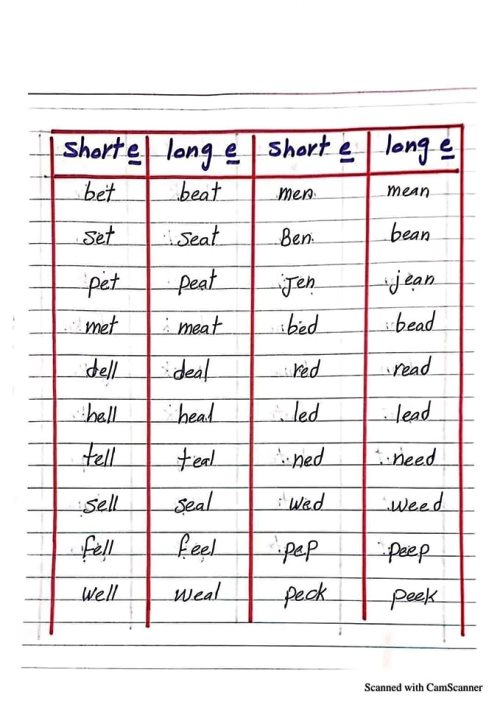 short e long e short e long e
bet beat men mean
set seat Ben bean
pet peat Jen jean
met meat bed bead
dell deal red read
hell heal led lead
tell teal ned need
sell seal wed weed
fell feel pep peep
well weal peck peek
Scanned with CamScanner